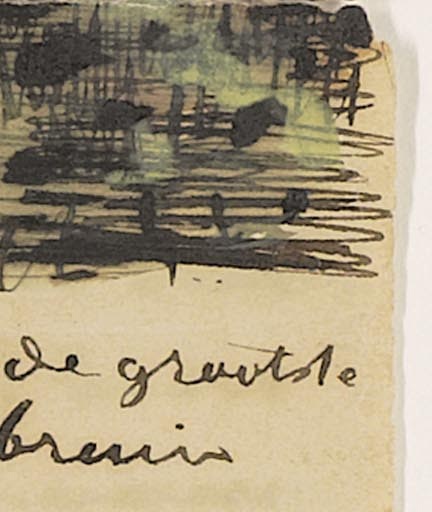 de grootste
bruin